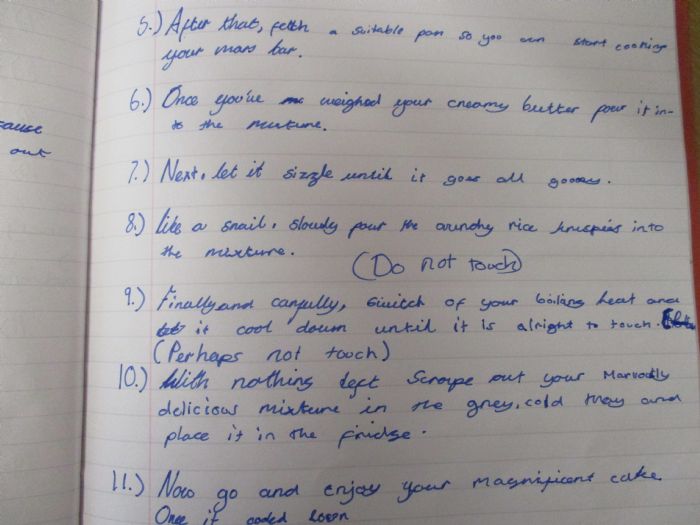 5.) After that, fetch a suitable pan so you can start cooking
your mars bar.
6.) Once you've weighed your creamy butter pour it in-
to the mixture.
7.) Next, let it sizzle until it goes all gooey.
8.) Like a snail, slowly pour the crunchy rice krispies into
the mixture.
(Do not touch)
9.) Finally and carfully, switch of your boiling heat and
let it cool down until it is alright to touch.
(Perhaps not touch)
10.) With nothing left scrape out your
delicious mixture in the grey, cold tray and
place it in the fridge.
11.) Now go and enjoy your magnificent cake
Once it
cause
out